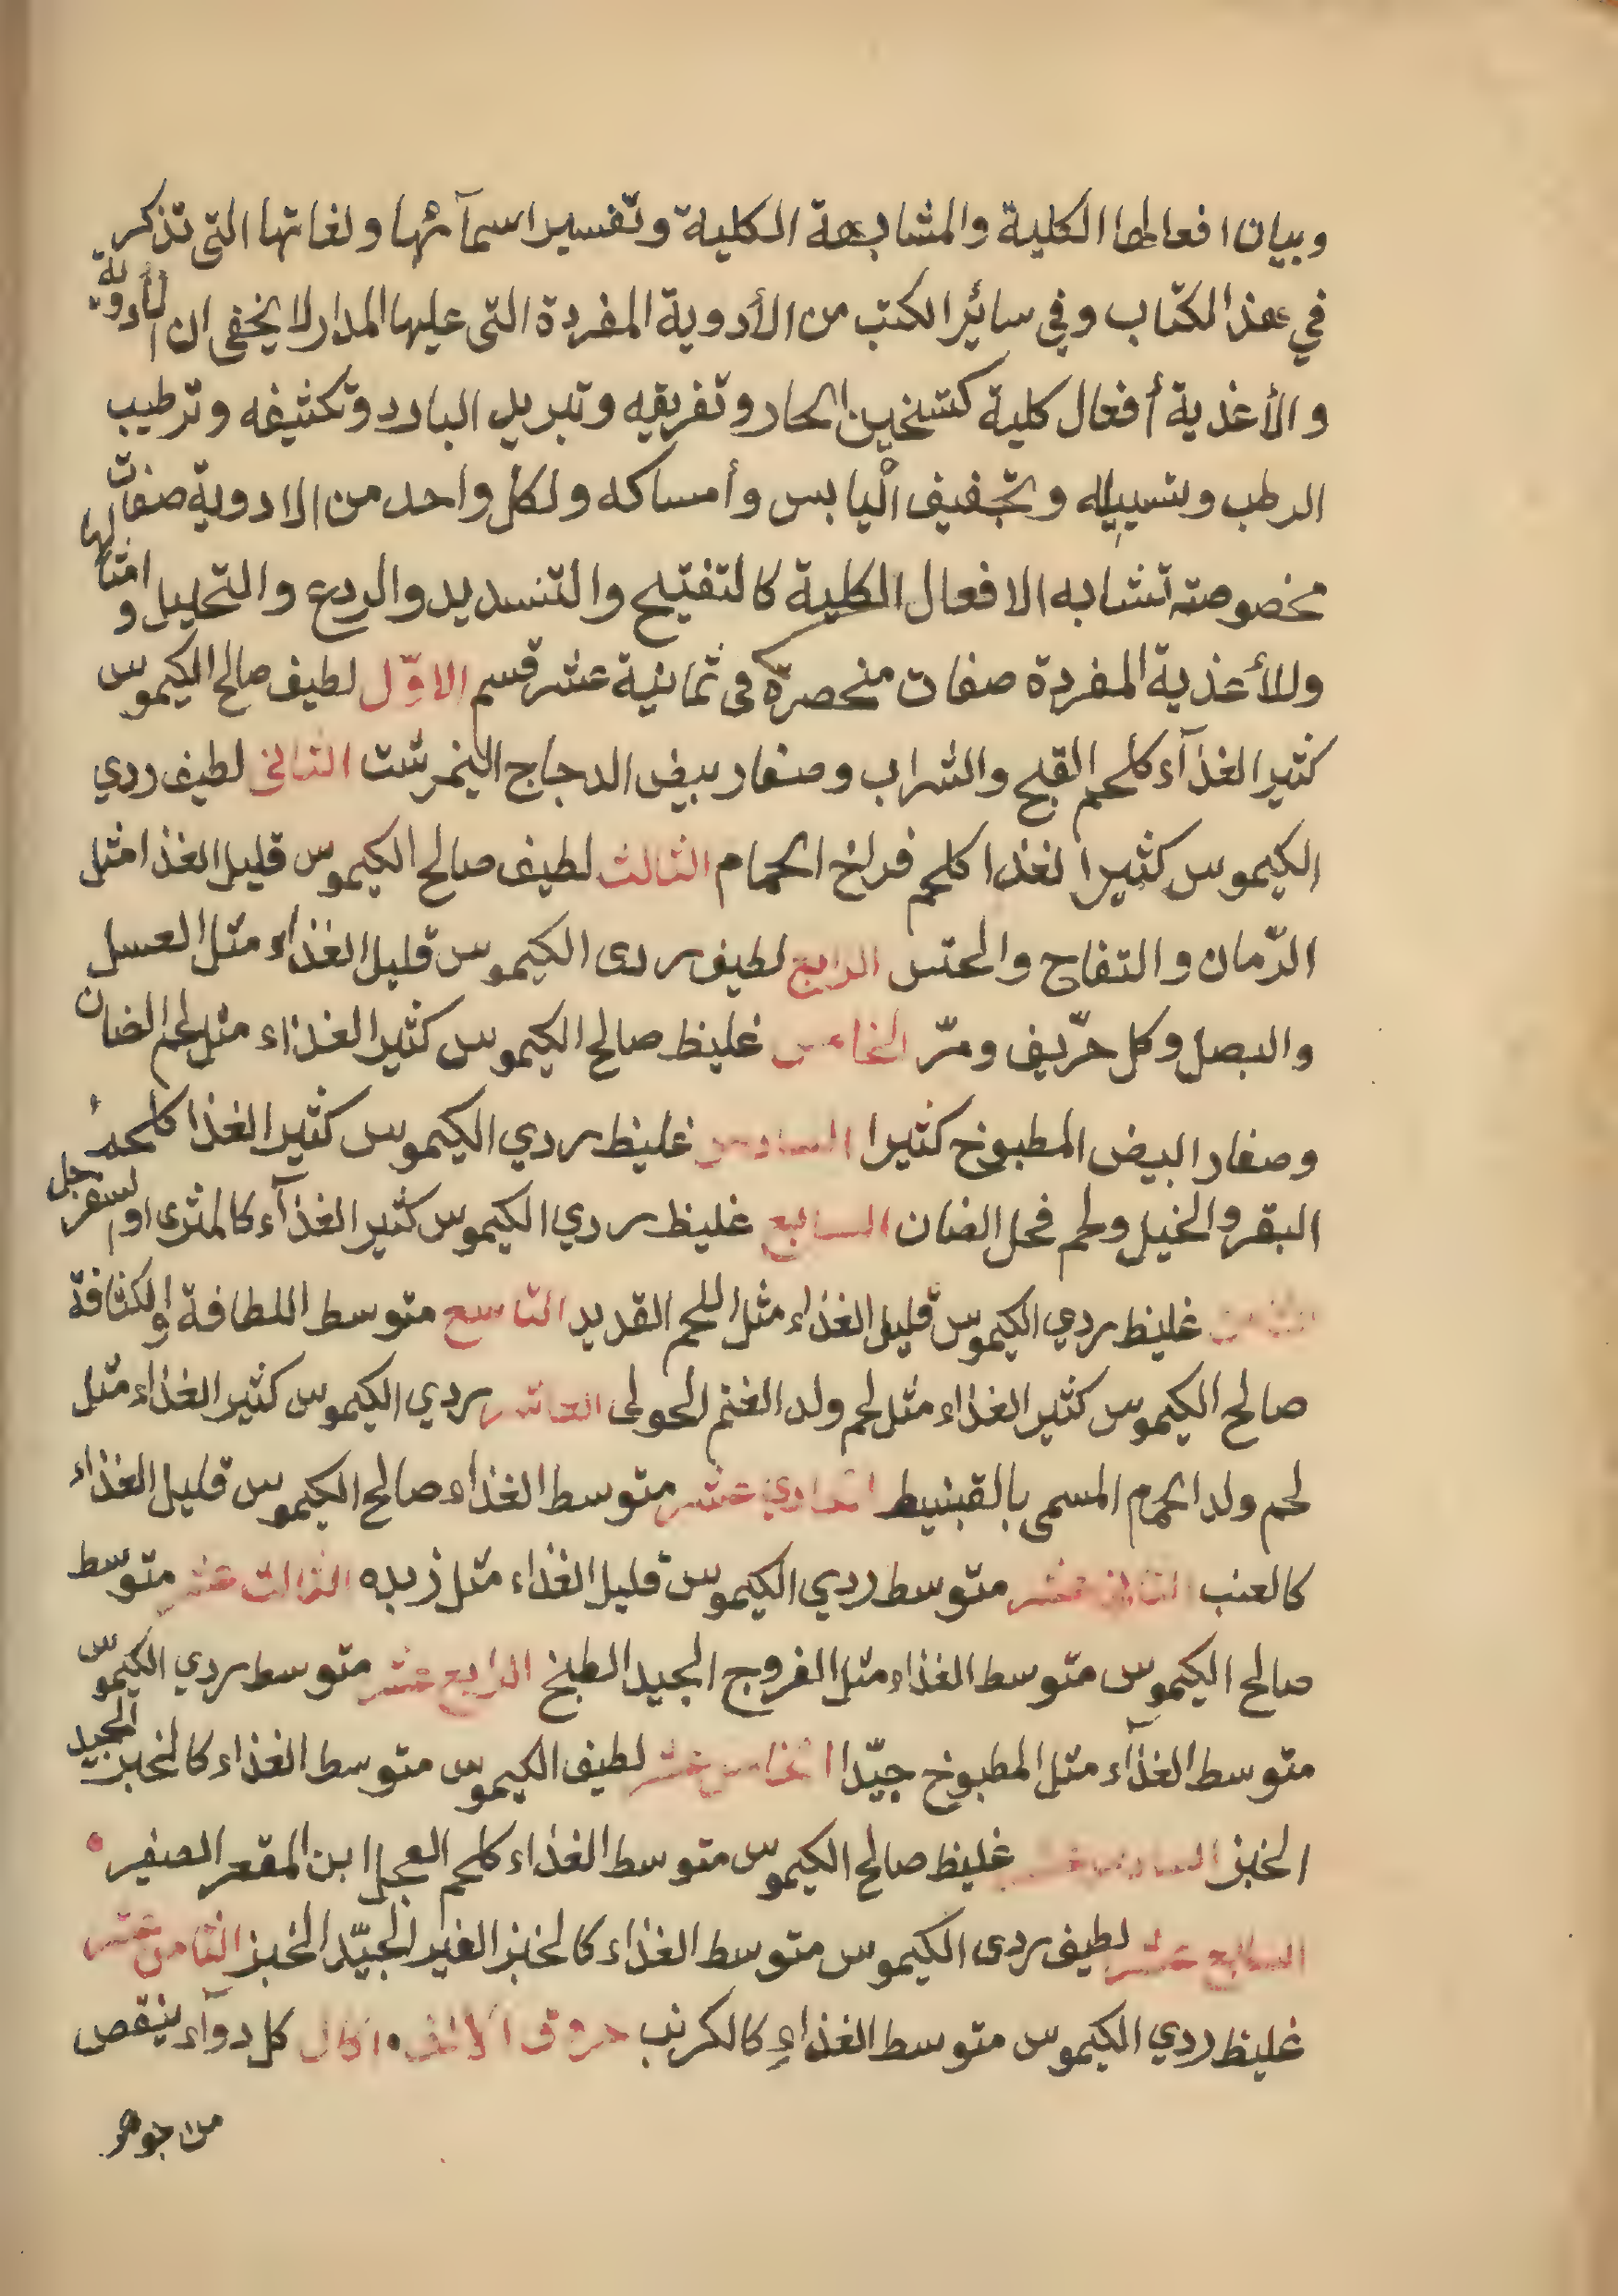 وبيان افعالها الكلية والمشابهة الكلية وتفسير اسمآئها ولغاتها التى تذكر
في هذا لكتاب وفي سائر الكتب من الأدوية المفردة التى عليها المدار لا يخفى ان للأدوية
والأغذية أفعال كلية كتسخين الحار وتفريقه وتبريد البارد وتكثيفه وترطيب
الرطب وتسييله وتجفيف اليابس وأمساكه ولكل واحد من الادوية صفات
مخصوصة تشابه الافعال الكلية كالتفتيح والتسديد والردع والتحليل وامثالها
وللأغذية المفردة صفات منحصرة فى ثمانية عشر قسم الاوّل لطيف صالح الكيموس
كثير الغذآء كلحم القبج والشراب وصفار بيض الدجاج النمرشت الثانى لطيف ردي
الكيموس كثير الغذا كلحم فراخ الحمام الثالث لطيف صالح الكيموس قليل الغذا مثل
الرّمان والتفاح والخس الرابع لطيف ردى الكيموس قليل الغذاء مثل العسل
والبصل وكل حرّيف ومرّ الخامس غليظ صالح الكيموس كثير الغذاء مثل لحم الضان
وصفار البيض المطبوخ كثيرا السادس غليظ ردي الكيموس كثير الغذا كلحم
البقر والخيل ولحم فحل الضان السابع غليظ ردي الكيموس كثير الغذآء كالمثرى او السفرجل
الثامن غليظ ردي الكيموس قليل الغذاء مثل اللحم القديد التاسع متوسط اللطافة والكثافة
صالح الكيموس كثير الغذاء مثل لحم ولد الغنم الحولى العاشر ردي الكيموس كثير الغذاء مثل
لحم ولد الحمام المسمى بالقبنيط الحادي عشر متوسط الغذاء صالح الكيموس قليل الغذاء
كالعنب الثانى عشر متوسط ردي الكيموس قليل الغذاء مثل زبده الثالث عشر متوسط
صالح الكيموس متوسط الغذاء مثل الفروج الجيد الطبخ الرابع عشر متوسط ردي الكيموس
متوسط الغذآء مثل المطبوخ جيّدا الخامس عشر لطيف الكيموس متوسط الغذاء كالخبز الجيد
الخبز السادس عشر غليظ صالح الكيموس متوسط الغذاء كلحم العجل ابن المقعر الصغير
السابع عشر لطيف ردى الكيموس متوسط الغذاء كالخبز الغير الجيّد الخبز الثامن عشر
غليظ ردي الكيموس متوسط الغذاءِ كالكرنب حروف الالف اكال كل دوآء ينقص
من جوهر